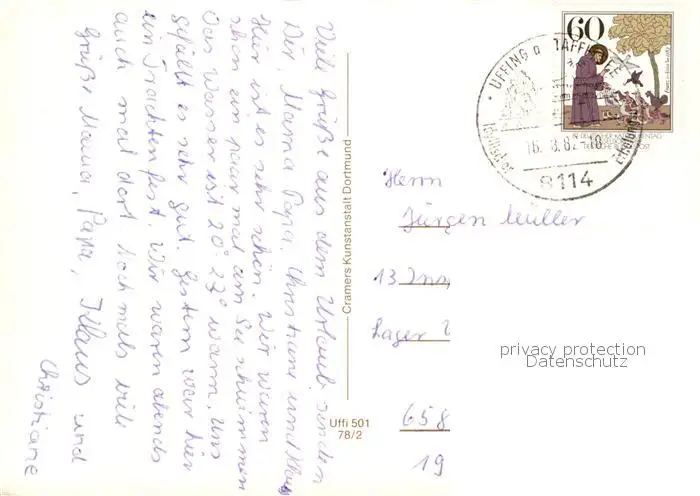 Viele Grüße aus dem Urlaub senden
Dir, Mama Papa, Christiane und Klaus
Hier ist es sehr schön. Wir waren
schon ein paar mal am See schwimmen
Das Wasser ist 20° 23° warm. Uns
gefällt es sehr gut. Gestern war hier
ein Trachtenfest. Wir waren abends
auch mal dort. Nochmals viele
Grüße Mama, Papa, Klaus und
Christiane
Cramers Kunstanstalt Dortmund
Uffi 501
78/2
60
UFFING a
8114
Herrn
Jürgen Müller
13
Lager
658
19
privacy protection
Datenschutz